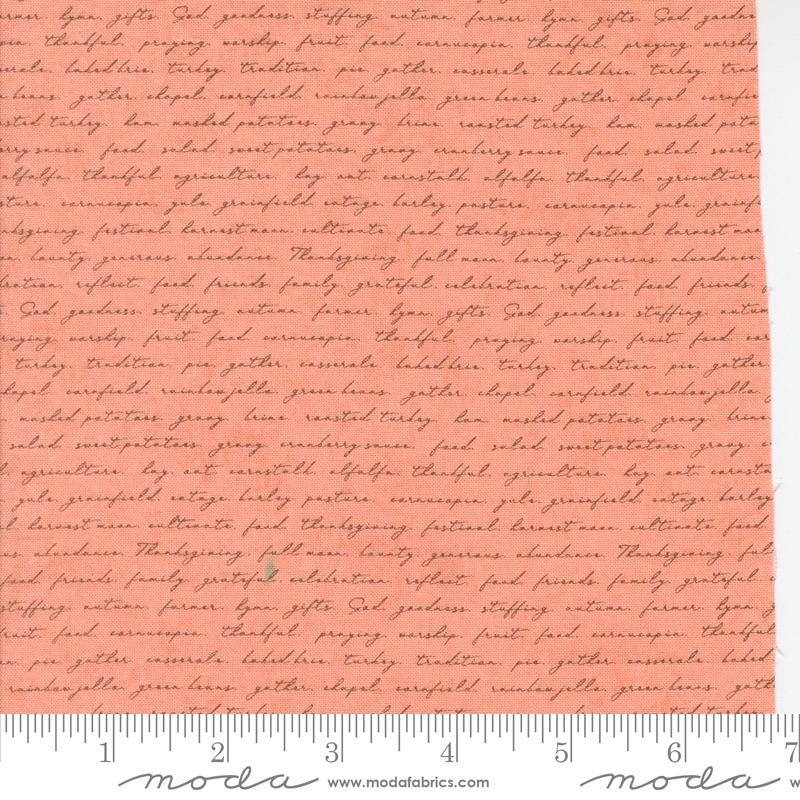 hymn, gifts, God, goodness, stuffing, autumn, farmer, hymn, gifts, God, goodne
thankful, praying, worship, fruit, food, cornucopia, thankful, praying, worship
baked brie, turkey, tradition, pie, gather, casserole, baked brie, turkey, trad
beans, gather, chapel, cornfield, rainbow jello, green beans, gather, chapel, cornfie
sted turkey, ham, mashed potatoes, gravy, brine, roasted turkey, ham, mashed pota
rry sauce, food, salad, sweet potatoes, gravy, cranberry sauce, food, salad, sweet
alfalfa, thankful, agriculture, hay, oat, cornstalk, alfalfa, thankful, agriculture
sture, cornucopia, yule, grainfield, cotage, barley, pasture, cornucopia, yule, grainf
nksgiving, festival, harvest moon, cultivate, food, thanksgiving, festival, harvest moo
bounty, generous, abundance, Thanksgiving, full moon, bounty, generous, abundance
bration, reflect, food, friends, family, grateful, celebration, reflect, food, friends,
God, goodness, stuffing, autumn, farmer, hymn, gifts, God, goodness, stuffing, autum
raying, worship, fruit, food, cornucopia, thankful, praying, worship, fruit, food, cor
turkey, tradition, pie, gather, casserole, baked brie, turkey, tradition, pie, gather,
chapel, cornfield, rainbow jello, green beans, gather, chapel, cornfield, rainbow jello
mashed potatoes, gravy, brine, roasted turkey, ham, mashed potatoes, gravy, brine
salad, sweet potatoes, gravy, cranberry sauce, food, salad, sweet potatoes, gravy, c
agriculture, hay, oat, cornstalk, alfalfa, thankful, agriculture, hay, oat, cornsta
yule, grainfield, cotage, barley, pasture, cornucopia, yule, grainfield, cotage, barley
harvest moon, cultivate, food, thanksgiving, festival, harvest moon, cultivate, food
us, abundance, Thanksgiving, full moon, bounty, generous, abundance, Thanksgiving, full
food, friends, family, grateful, celebration, reflect, food, friends, family, grateful,
stuffing, autumn, farmer, hymn, gifts, God, goodness, stuffing, autumn, farmer, hymn, g
fruit, food, cornucopia, thankful, praying, worship, fruit, food, cornucopia, thankful
pie, gather, casserole, baked brie, turkey, tradition, pie, gather, casserole, baked
rainbow jello, green beans, gather, chapel, cornfield, rainbow jello, green beans, gath
1 2 3 4 5 6 7
moda www.modafabrics.com moda w